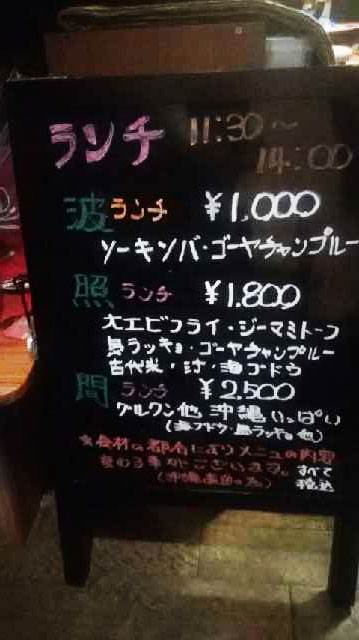 ランチ 11:30～
14:00
波ランチ ¥1,000
ソーキソバ・ゴーヤチャンプルー
照ランチ ¥1.800
大エビフライ・ジーマミトーフ
島ラッキョ・ゴーヤチャンプルー
古代米・汁・海ブドウ
間ランチ ¥2.500
グルクン他沖縄いっぱい
(海ブドウ・島ラッキョ他)
食材の都合によりメニューの内容
変わる事がございます。すべて
(沖縄産の為) 税込